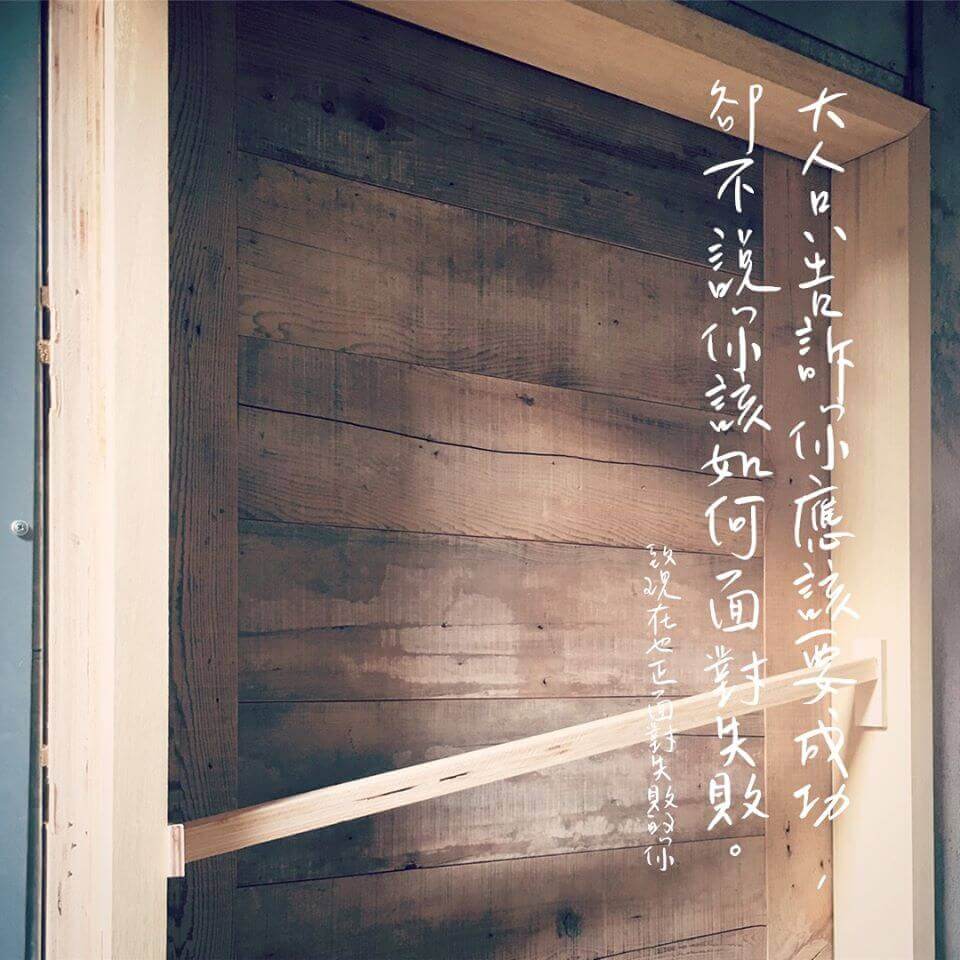 大人只告訴你應該要成功，
卻不說你該如何面對失敗。
致現在也正面對失敗的你